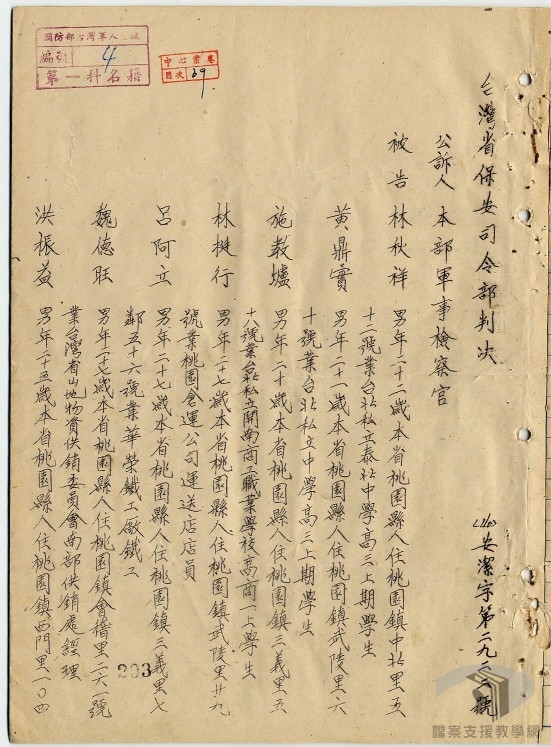 台灣省保安司令部判決
安潔字第二九二六號
公訴人 本部軍事檢察官
被告 林秋祥 男年二十二歲本省桃園縣人住桃園鎮中北里五
十二號業台北私立泰北中學高三上期學生
黃鼎實 男年二十一歲本省桃園縣人住桃園鎮武陵里六
十號業台北私立中學高三上期學生
施教爐 男年二十歲本省桃園縣人住桃園鎮三義里五
十八號業台北私立開南商工職業學校高商一上學生
林挺行 男年二十七歲本省桃園縣人住桃園鎮武陵里廿九
號業桃園倉運公司運送店店員
呂阿立 男年二十七歲本省桃園縣人住桃園鎮三義里七
鄰五十六號業華榮鐵工廠鐵工
魏德旺 男年二十七歲本省桃園縣人住桃園鎮會稽里二六一號
業台灣省山地物資供銷委員會南部供銷處經理
洪振益 男年二十五歲本省桃園縣人住桃園鎮西門里一〇四
國防部台灣軍人
編號 4
第一科名籍
中心案卷
目次 29
203
檔案支援教學網